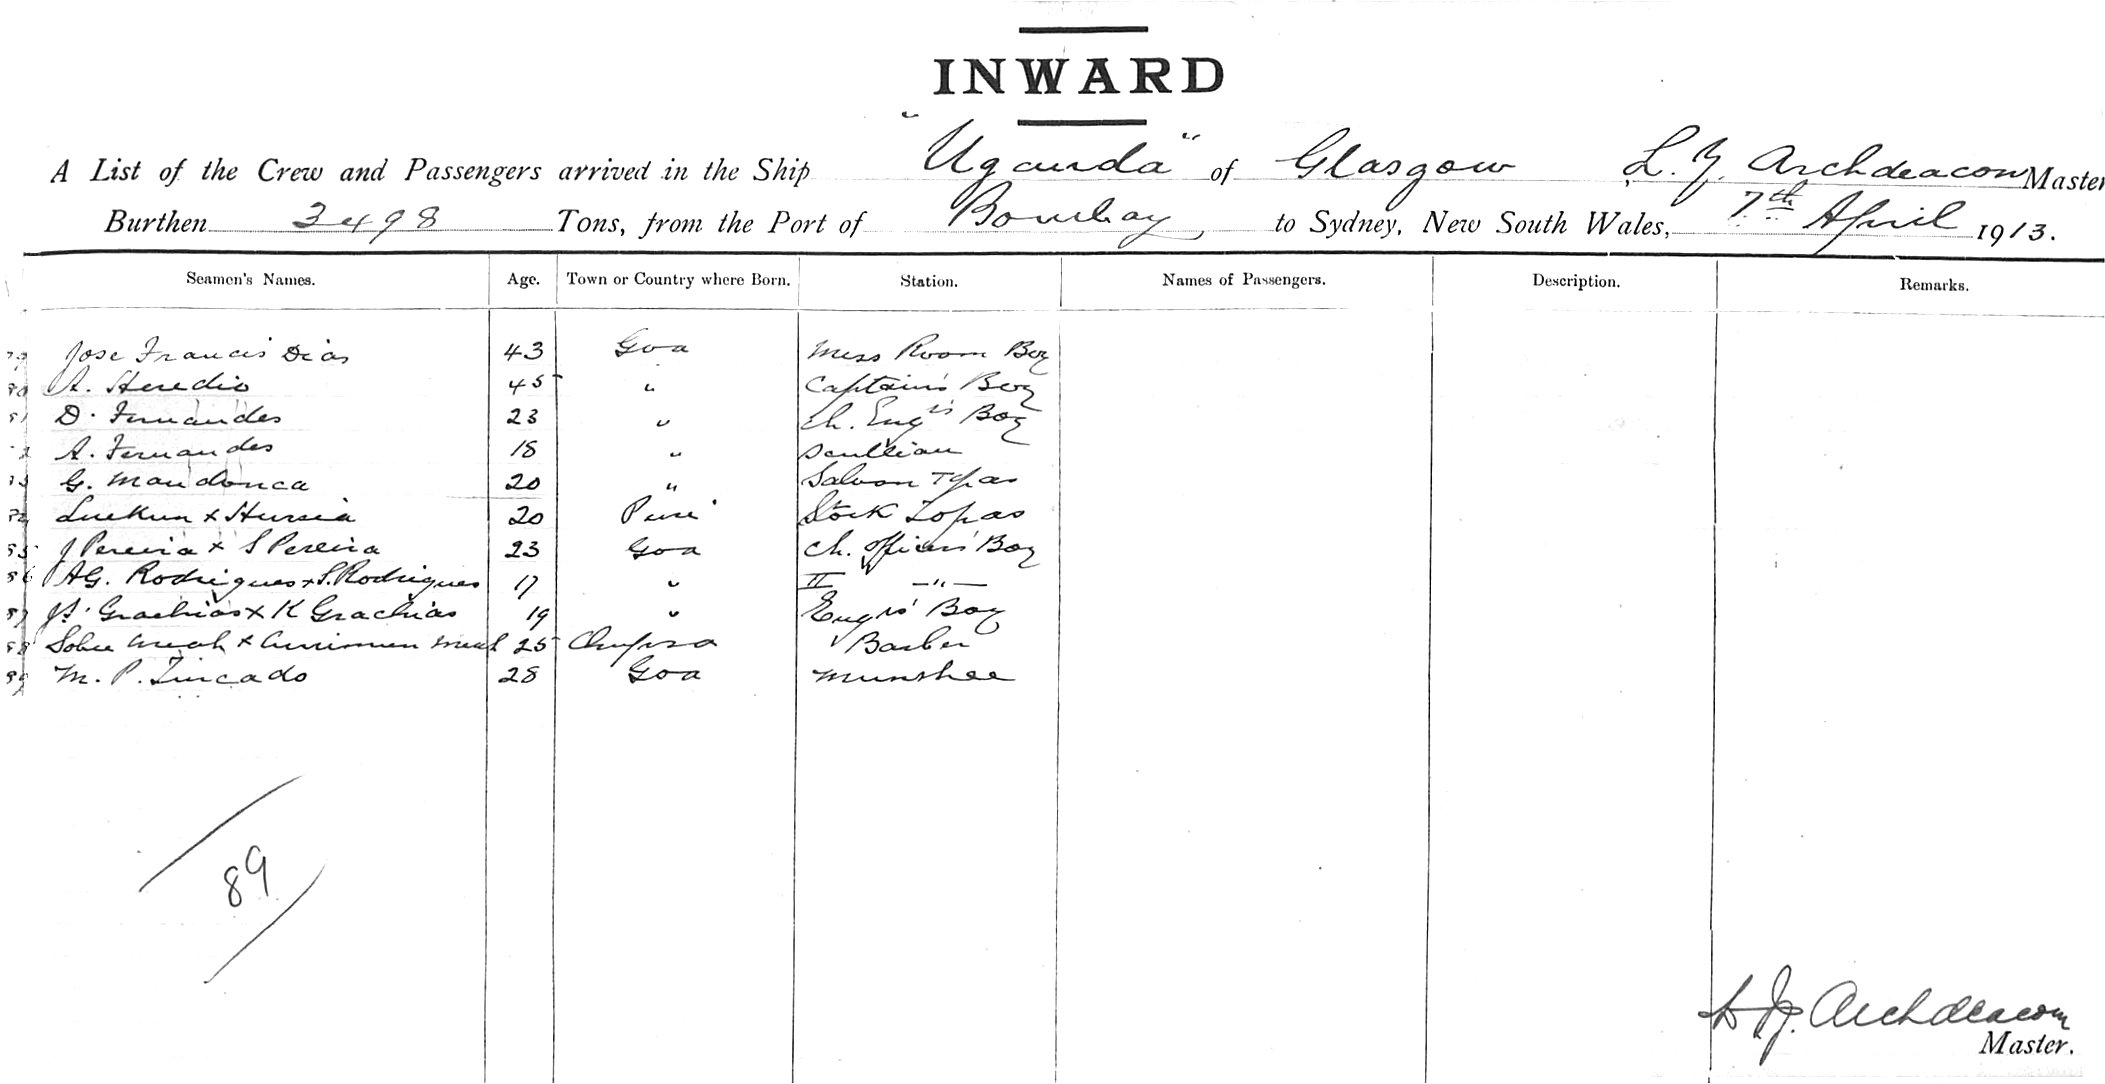 INWARD
A List of the Crew and Passengers arrived in the Ship "Uganda" of Glasgow L. Archdeacon Master
Burthen 3498 Tons, from the Port of Bombay to Sydney, New South Wales, 7th April 1913.
Seamen's Names. Age. Town or Country where Born. Station. Names of Passengers. Description. Remarks.
79 Jose Francis Dias 43 Goa Mess Room Boy
80 A. Heredio 45 " Captain's Boy
81 D. Fernandes 23 " Ch. Engrs Boy
A. Fernandes 18 " Scullian
83 G. Mandonca 20 " Saloon Tpas
x Hursia 20 Stock Topas
85 J Pereira x S Pereira 23 Goa Ch. officers' Boy
86 AG. Rodrigues x S. Rodrigues 17 " II —"—
87 Grachias x K Grachias 19 " Engrs' Boy
88 x 25 Barber
89 M. P. 28 Goa Munshee
89
Archdeacon
Master.